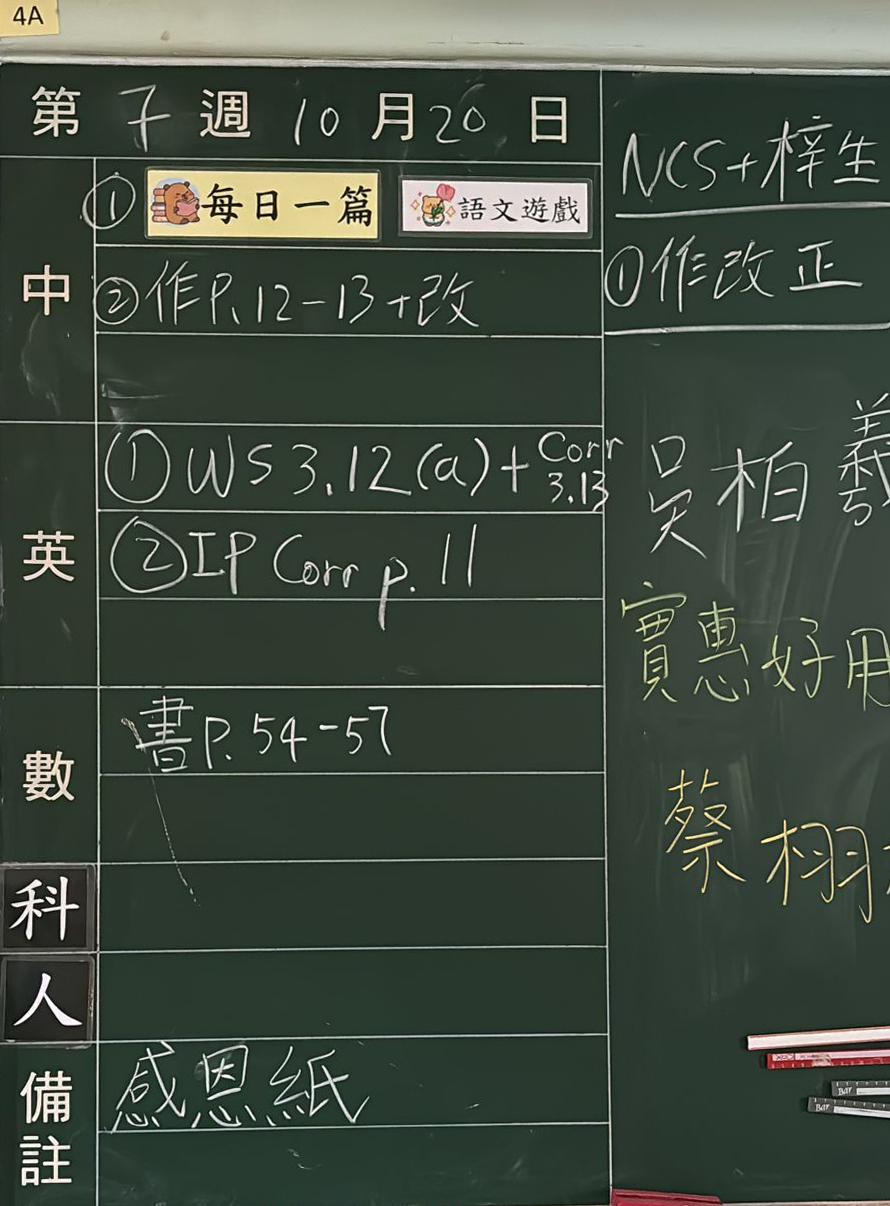 4A
第 7 週 10 月 20 日
中
① 每日一篇 語文遊戲
② 作P.12-13+改
英
① WS 3.12(a)+ Corr 3.13
② IP Corr p. 11
數
書P. 54-57
科
人
備註
感恩紙
NCS+梓生
① 作改正
吳柏義
實惠好用
蔡栩